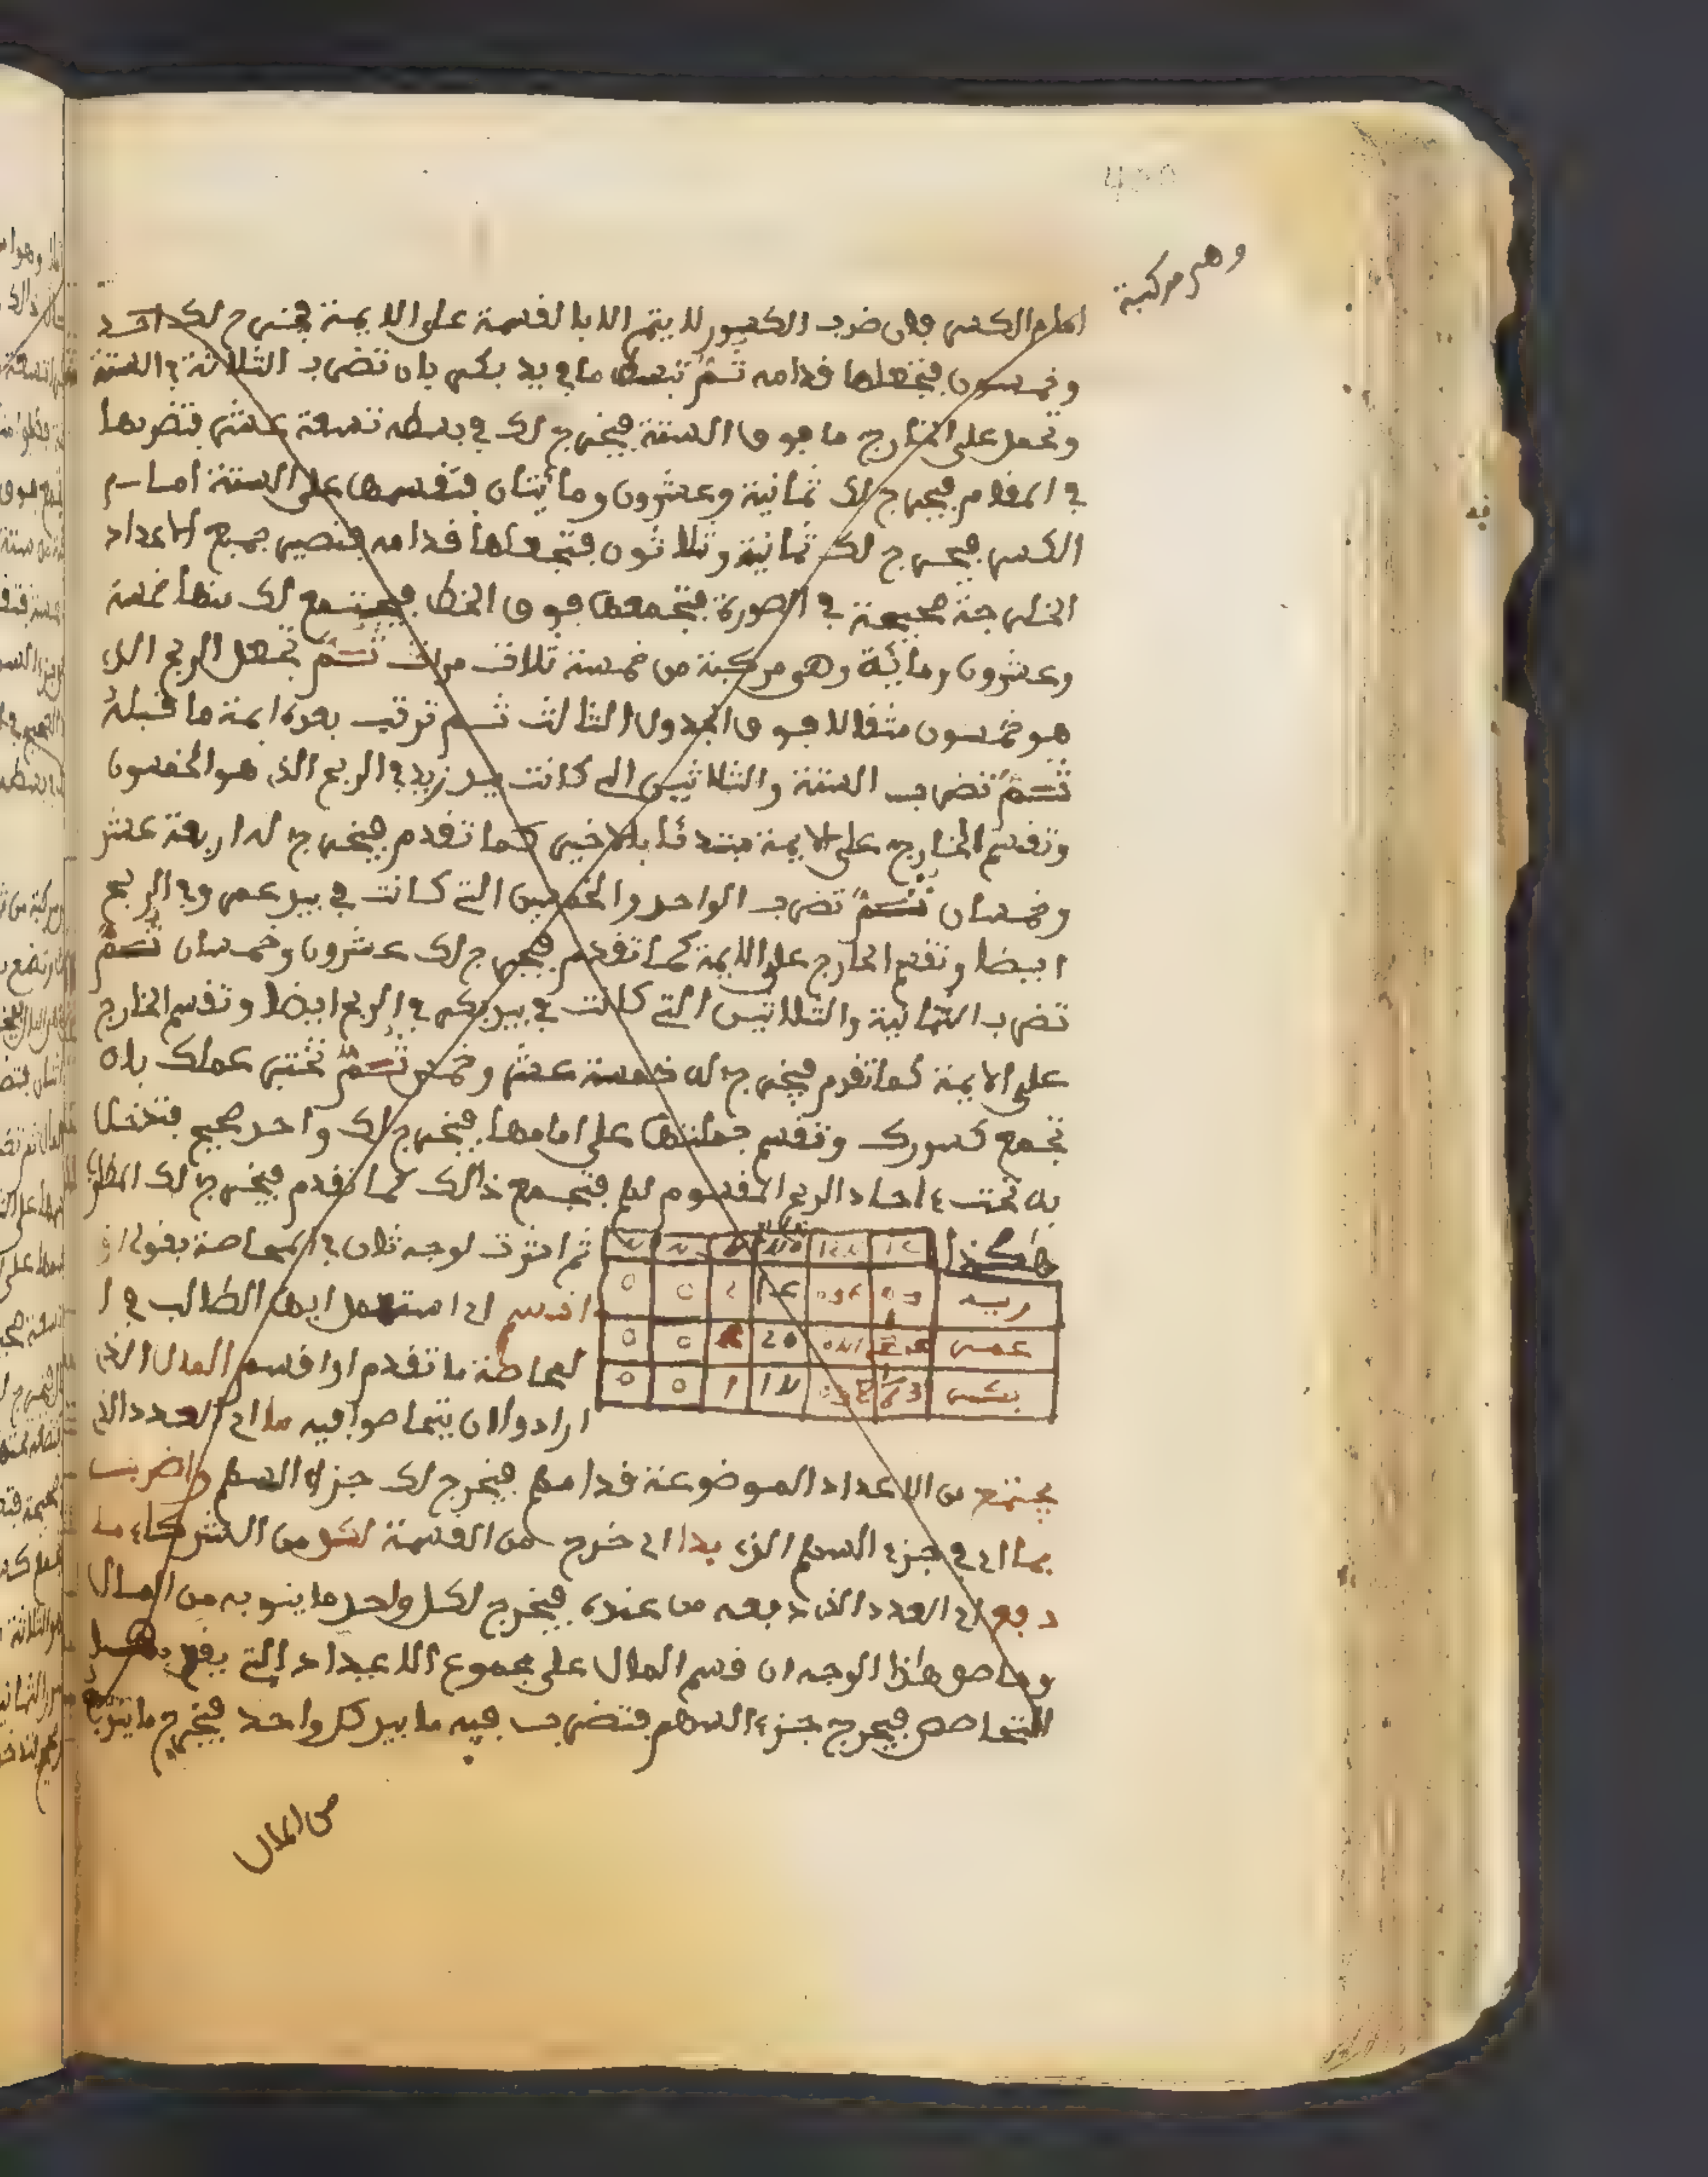 وهي مركبة
امام الكسر فان ضرب الكسور لا يتم الا بالقسمة على الايمة فيخرج لك احد
وخمسون فتجعلها قدامه ثم تبسط ما في يد بكر بان تضرب الثلاثة في الستة
وتحمل على الخارج ما فوق الستة فيخرج لك في بسطه تسعة عشر فتضربها
في المقام فيخرج لك ثمانية وعشرون ومائتان فتقسمها على الستة امام
الكسر فيخرج لك ثمانية وثلاثون فتجعلها قدامه فتصير جميع الاعداد
الخارجة صحيحة في الصورة فتجمعها فوق الخط فيجتمع لك منها خمسة
وعشرون ومائة وهي مركبة من خمسة ثلاث مرات ثم تجعل الربح الذي
هو خمسون مثقالا فوق الجدول الثالث ثم ترتب بعده ايمة ما قبله
ثم تضرب الستة والثلاثين التي كانت بيد زيد في الربح الذي هو الخمسون
وتقسم الخارج على الايمة مبتدئا بالاخير كما تقدم فيخرج له اربعة عشر
وخمسان ثم تضرب الواحد والخمسين التي كانت في بيد عمرو في الربح
ايضا وتقسم الخارج على الايمة كما تقدم فيخرج لك عشرون وخمسان ثم
تضرب الثمانية والثلاثين التي كانت في بيد بكر في الربح ايضا وتقسم الخارج
على الايمة كما تقدم فيخرج له خمسة عشر وخمس ثم تختبر عملك بان
تجمع كسورك وتقسم جملتها على امامها فيخرج لك واحد صحيح فتدخل
به تحت ءاحاد الربح المقسوم لهم فتجمع ذالك كما تقدم فيخرج لك المطلوب
هاكذا
ثم اشرت لوجه ثان في المحاصة بقولي او
زيد
اقسم اي استعمل ايها الطالب في ا
عمر
لمحاصة ما تقدم او اقسم المال الذي
بكر
ارادوا ان يتحاصوا فيه ما اي العدد الذي
يجتمع من الاعداد الموضوعة قدامهم فيخرج لك جزء السهم واضرب
بما اي في جزء السهم الذي بدا اي خرج من القسمة لكل من الشركاء ما
دفع اي العدد الذي دفعه من عنده فيخرج لكل واحد ما ينوبه من المال
وحاصل هاذا الوجه ان قسم المال على مجموع الاعداد التي يقع بها
التحاصص فيخرج جزء السهم فتضرب فيه ما بيد كل واحد فيخرج ما ينوبه
من المال